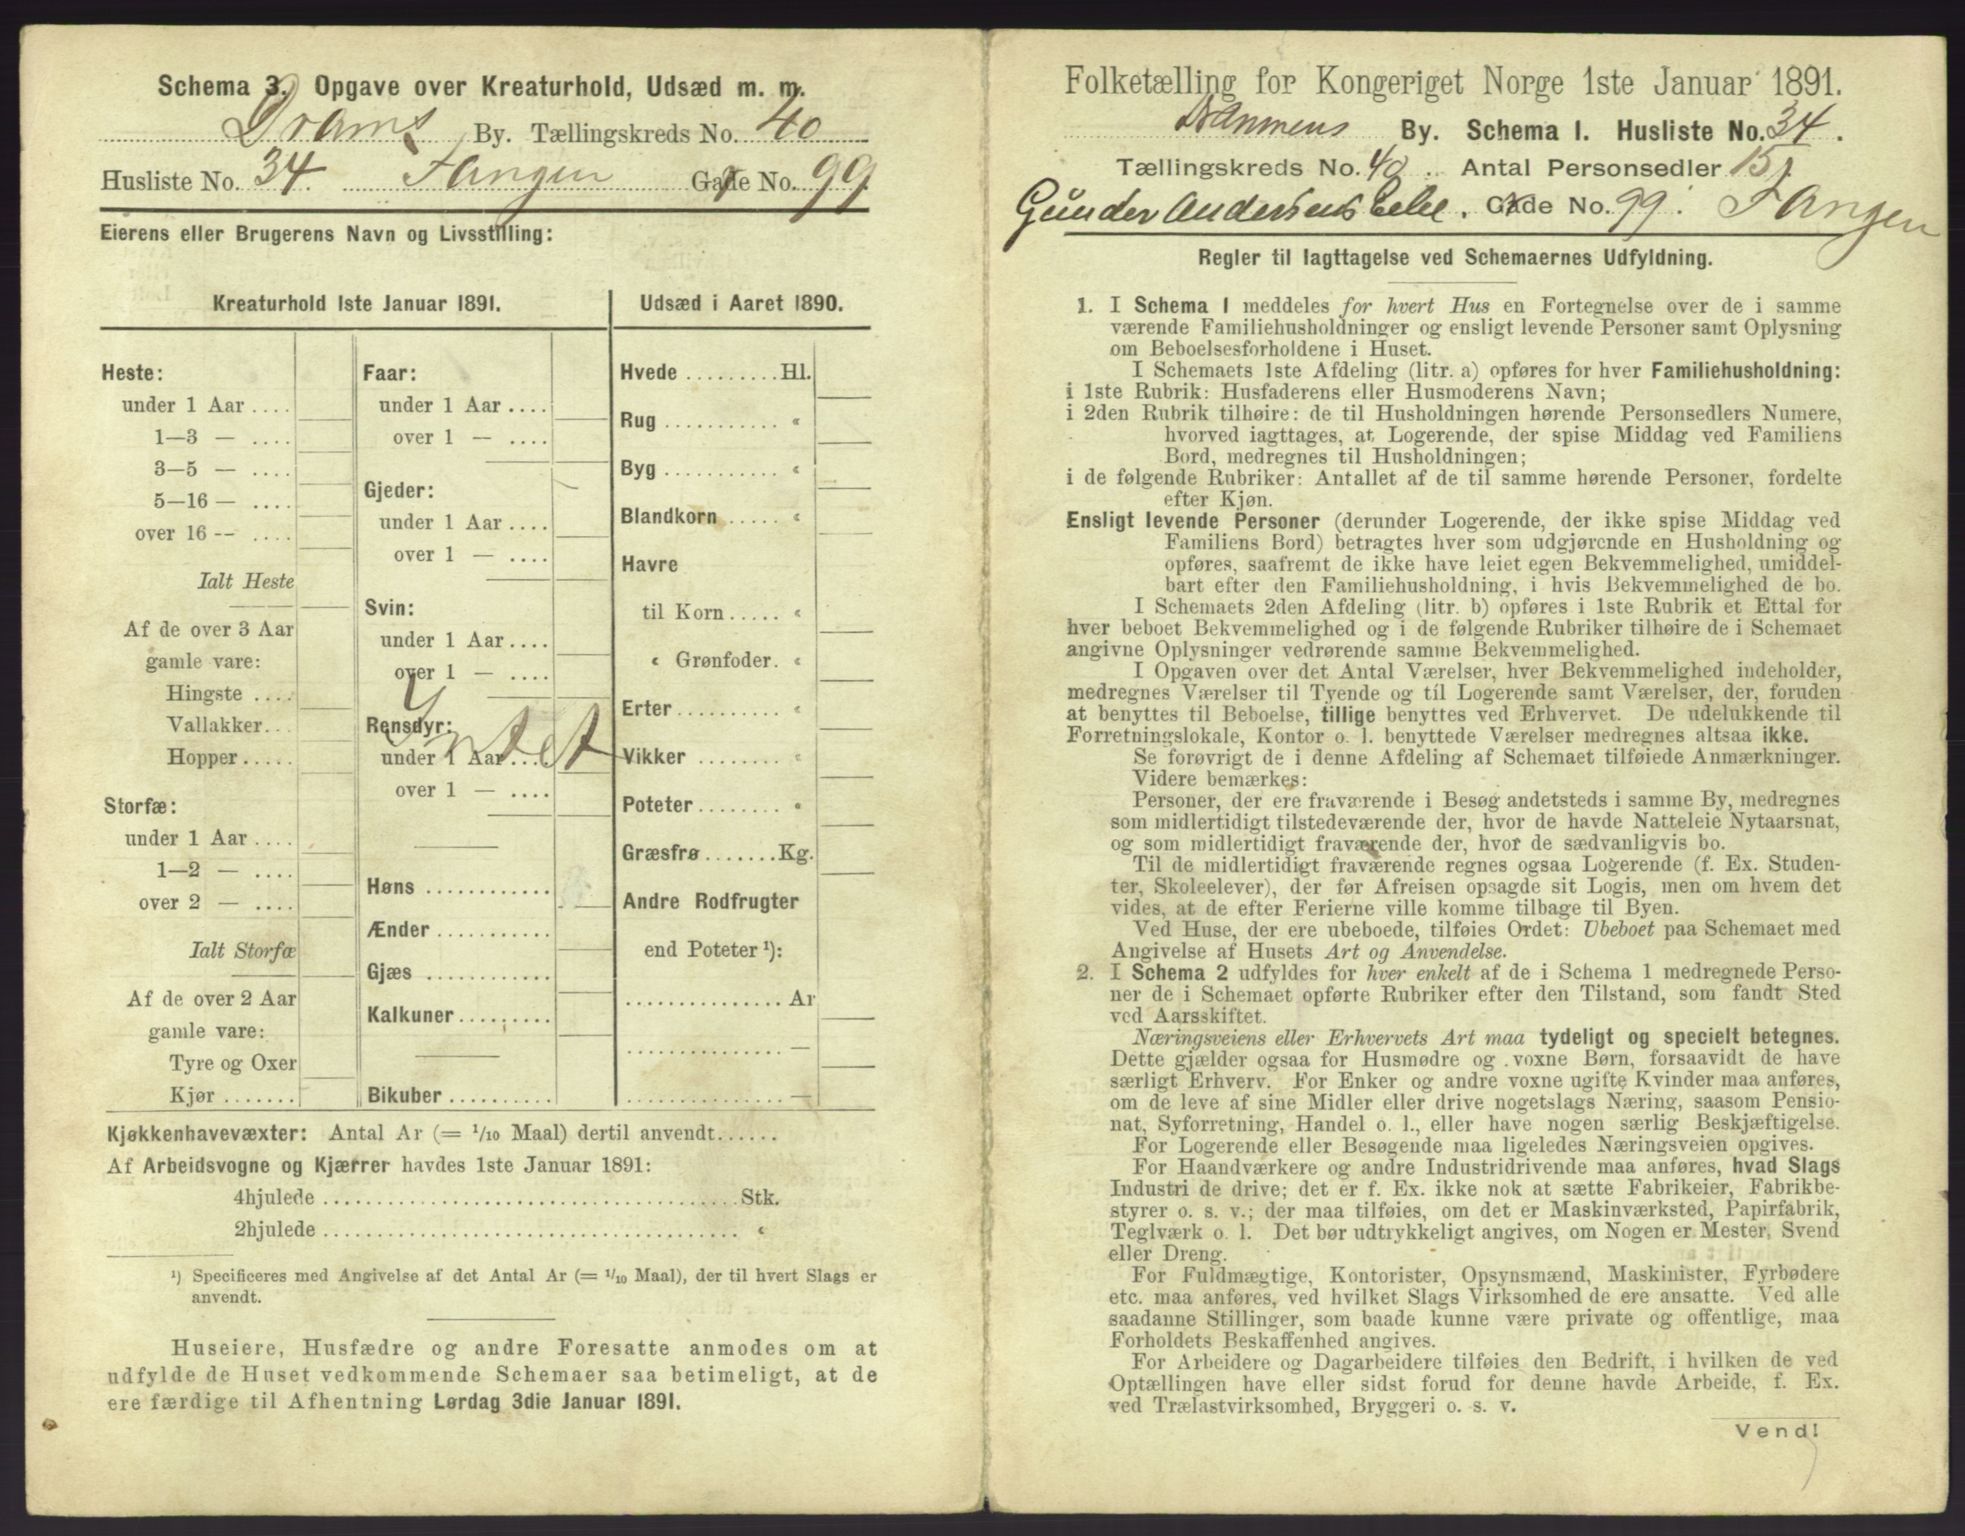 Schema 3. Opgave over Kreaturhold, Udsæd m. m.
Drams By. Tællingskreds No. 40
Husliste No. 34. Tangen Gade No. 99.
Eierens eller Brugerens Navn og Livsstilling:
Kreaturhold 1ste Januar 1891.
Heste:
under 1 Aar ....
1—3 — ....
3—5 — ....
5—16 — ....
over 16 -- ....
Ialt Heste
Af de over 3 Aar
gamle vare:
Hingste ....
Vallakker...
Hopper.....
Storfæ:
under 1 Aar ....
1—2 — ....
over 2 — ....
Ialt Storfæ
Af de over 2 Aar
gamle vare:
Tyre og Oxer
Kjør .......
Faar:
under 1 Aar ....
over 1 — ....
Gjeder:
under 1 Aar ....
over 1 — ....
Svin:
under 1 Aar ....
over 1 — ....
Rensdyr:
Intet
under 1 Aar ....
over 1 — ....
Høns ...........
Ænder ...........
Gjæs ...........
Kalkuner.........
Bikuber ..........
Udsæd i Aaret 1890.
Hvede .........Hl.
Rug ........... «
Byg ........... «
Blandkorn ..... «
Havre
til Korn..... «
« Grønfoder. «
Erter.......... «
Vikker ........ «
Poteter ........ «
Græsfrø.......Kg.
Andre Rodfrugter
end Poteter ¹):
............... Ar
............... —
............... —
Kjøkkenhavevæxter: Antal Ar (= 1/10 Maal) dertil anvendt......
Af Arbeidsvogne og Kjærrer havdes 1ste Januar 1891:
4hjulede ........................................ Stk.
2hjulede ........................................ «
¹) Specificeres med Angivelse af det Antal Ar (= 1/10 Maal), der til hvert Slags er
anvendt.
Huseiere, Husfædre og andre Foresatte anmodes om at
udfylde de Huset vedkommende Schemaer saa betimeligt, at de
ere færdige til Afhentning Lørdag 3die Januar 1891.
Folketælling for Kongeriget Norge 1ste Januar 1891.
Drammens By. Schema I. Husliste No. 34.
Tællingskreds No. 40. Antal Personsedler 15
Gunder Andersens Gade No. 99. Tangen
Regler til Iagttagelse ved Schemaernes Udfyldning.
1. I Schema 1 meddeles for hvert Hus en Fortegnelse over de i samme
værende Familiehusholdninger og ensligt levende Personer samt Oplysning
om Beboelsesforholdene i Huset.
I Schemaets 1ste Afdeling (litr. a) opføres for hver Familiehusholdning:
i 1ste Rubrik: Husfaderens eller Husmoderens Navn;
i 2den Rubrik tilhøire: de til Husholdningen hørende Personsedlers Numere,
hvorved iagttages, at Logerende, der spise Middag ved Familiens
Bord, medregnes til Husholdningen;
i de følgende Rubriker: Antallet af de til samme hørende Personer, fordelte
efter Kjøn.
Ensligt levende Personer (derunder Logerende, der ikke spise Middag ved
Familiens Bord) betragtes hver som udgjørende en Husholdning og
opføres, saafremt de ikke have leiet egen Bekvemmelighed, umiddel-
bart efter den Familiehusholdning, i hvis Bekvemmelighed de bo.
I Schemaets 2den Afdeling (litr. b) opføres i 1ste Rubrik et Ettal for
hver beboet Bekvemmelighed og i de følgende Rubriker tilhøire de i Schemaet
angivne Oplysninger vedrørende samme Bekvemmelighed.
I Opgaven over det Antal Værelser, hver Bekvemmelighed indeholder,
medregnes Værelser til Tyende og til Logerende samt Værelser, der, foruden
at benyttes til Beboelse, tillige benyttes ved Erhvervet. De udelukkende til
Forretningslokale, Kontor o. l. benyttede Værelser medregnes altsaa ikke.
Se forøvrigt de i denne Afdeling af Schemaet tilføiede Anmærkninger.
Videre bemærkes:
Personer, der ere fraværende i Besøg andetsteds i samme By, medregnes
som midlertidigt tilstedeværende der, hvor de havde Natteleie Nytaarsnat,
og som midlertidigt fraværende der, hvor de sædvanligvis bo.
Til de midlertidigt fraværende regnes ogsaa Logerende (f. Ex. Studen-
ter, Skoleelever), der før Afreisen opsagde sit Logis, men om hvem det
vides, at de efter Ferierne ville komme tilbage til Byen.
Ved Huse, der ere ubeboede, tilføies Ordet: Ubeboet paa Schemaet med
Angivelse af Husets Art og Anvendelse.
2. I Schema 2 udfyldes for hver enkelt af de i Schema 1 medregnede Perso-
ner de i Schemaet opførte Rubriker efter den Tilstand, som fandt Sted
ved Aarsskiftet.
Næringsveiens eller Erhvervets Art maa tydeligt og specielt betegnes.
Dette gjælder ogsaa for Husmødre og voxne Børn, forsaavidt de have
særligt Erhverv. For Enker og andre voxne ugifte Kvinder maa anføres,
om de leve af sine Midler eller drive nogetslags Næring, saasom Pensio-
nat, Syforretning, Handel o. l., eller have nogen særlig Beskjæftigelse.
For Logerende eller Besøgende maa ligeledes Næringsveien opgives.
For Haandværkere og andre Industridrivende maa anføres, hvad Slags
Industri de drive; det er f. Ex. ikke nok at sætte Fabrikeier, Fabrikbe-
styrer o. s. v.; der maa tilføies, om det er Maskinværksted, Papirfabrik,
Teglværk o. l. Det bør udtrykkeligt angives, om Nogen er Mester, Svend
eller Dreng.
For Fuldmægtige, Kontorister, Opsynsmænd, Maskinister, Fyrbødere
etc. maa anføres, ved hvilket Slags Virksomhed de ere ansatte. Ved alle
saadanne Stillinger, som baade kunne være private og offentlige, maa
Forholdets Beskaffenhed angives.
For Arbeidere og Dagarbeidere tilføies den Bedrift, i hvilken de ved
Optællingen have eller sidst forud for denne havde Arbeide, f. Ex.
ved Trælastvirksomhed, Bryggeri o. s. v.
Vend!